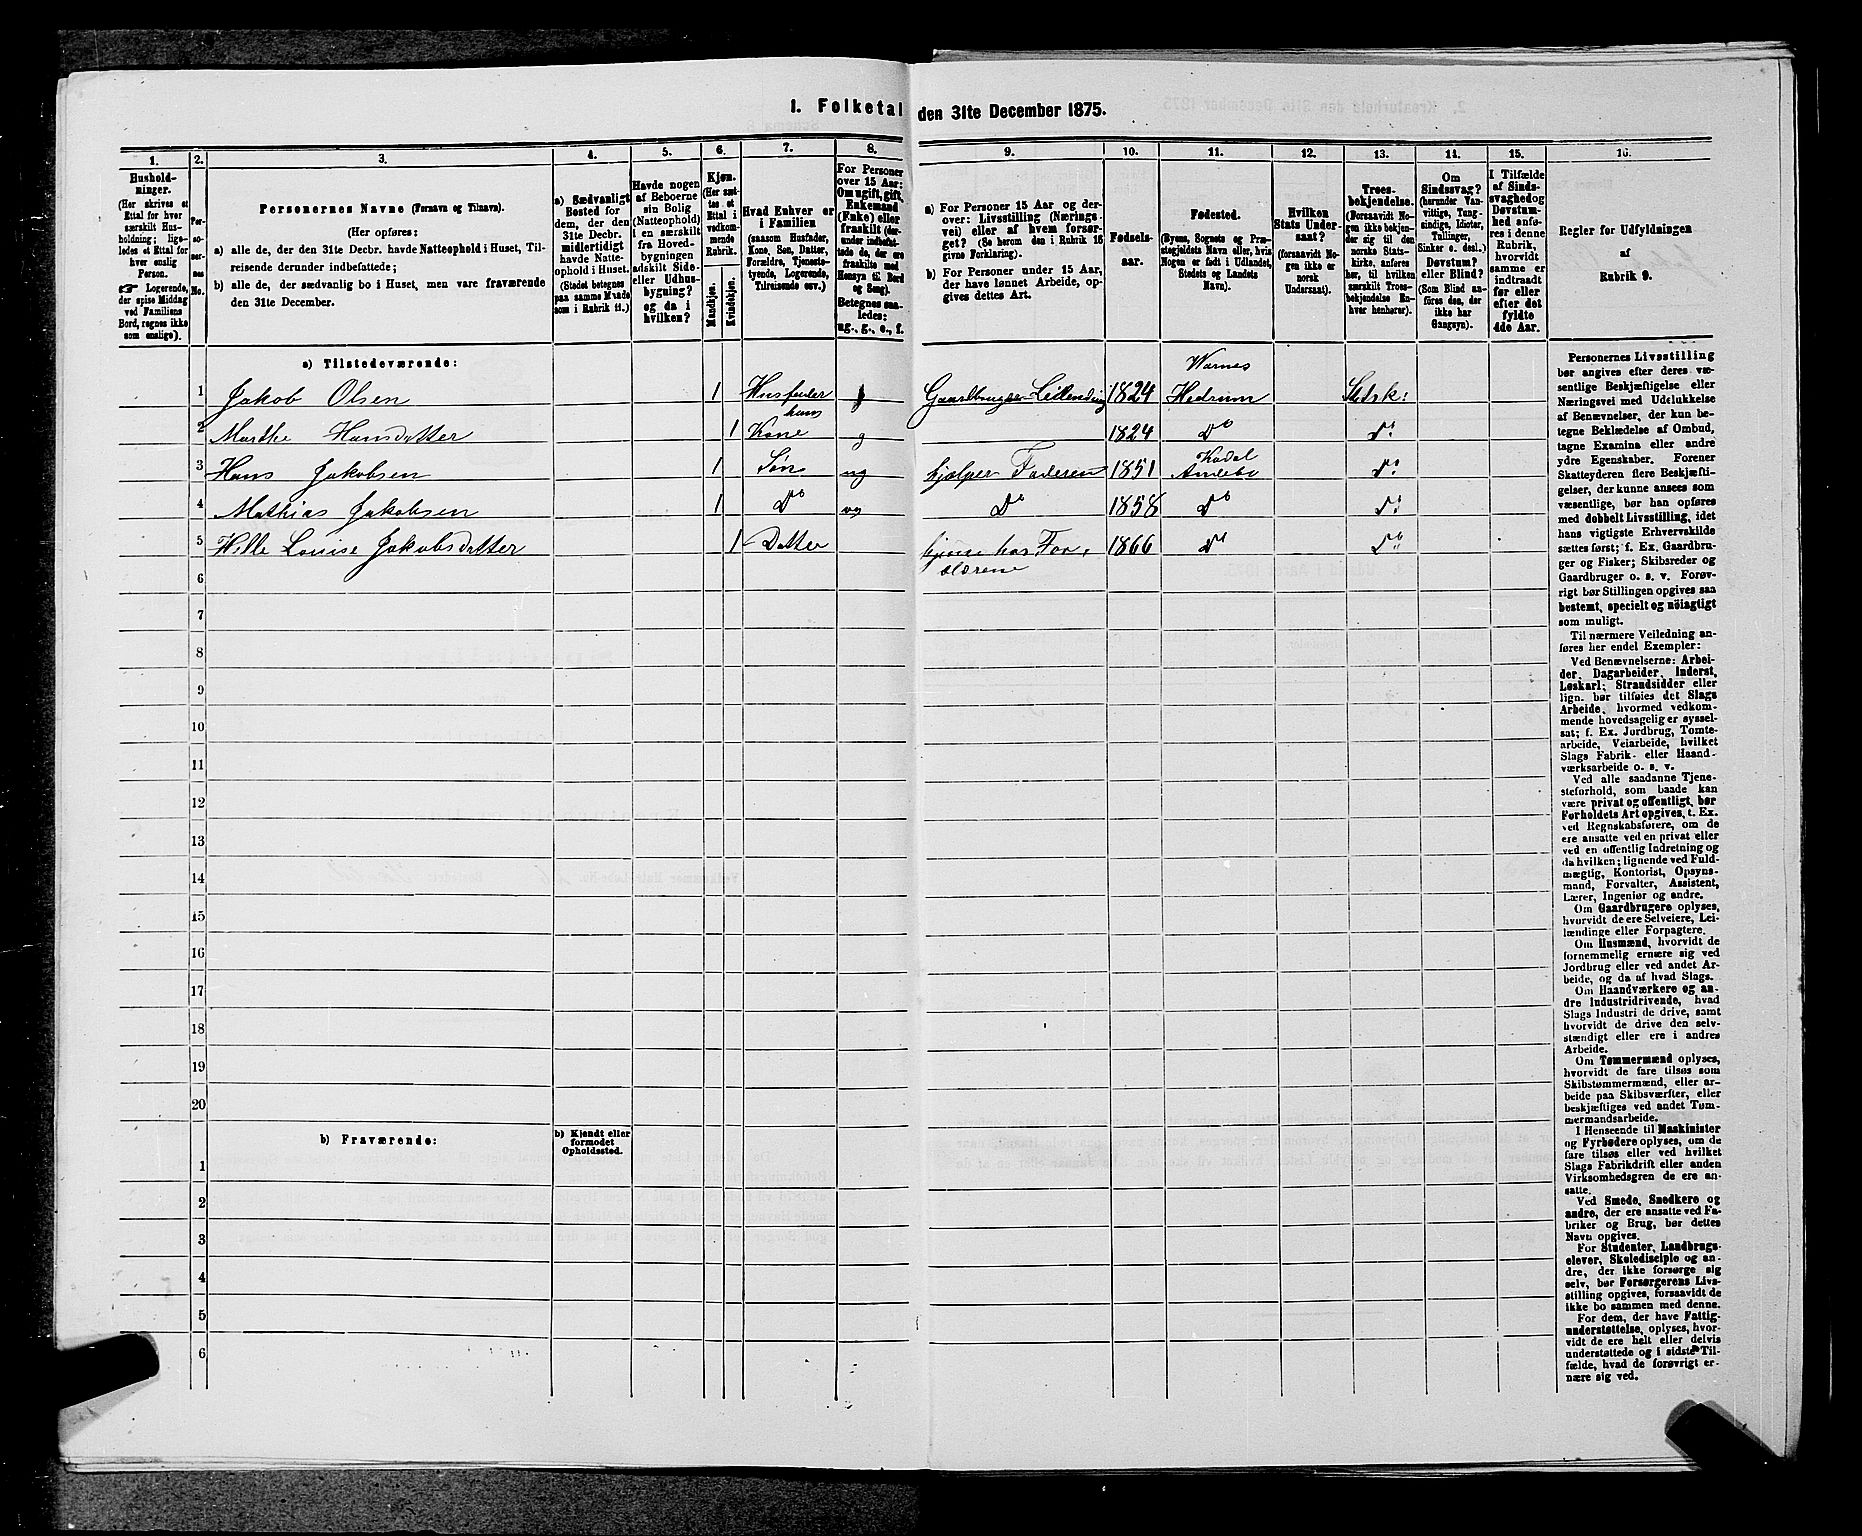 1. Folketal den 31te December 1875.
1. 2. 3. 4. 5. 6. 7. 8. 9. 10. 11. 12. 13. 14. 15. 16.
Hushold-
ninger.
(Her skrives et
Ettal for hver
særskilt Hus-
holdning; lige-
ledes et Ettal for
hver enslig
Person.
☞ Logerende,
der spise Middag
ved Familiens
Bord, regnes ikke
som enslige).
Per-
so-
ner-
nes
No.
Personernes Navne (Fornavn og Tilnavn).
(Her opføres:
a) alle de, der den 31te Decbr. havde Natteophold i Huset, Til-
reisende derunder indbefattede;
b) alle de, der sædvanlig bo i Huset, men vare fraværende
den 31te December.
a) Sædvanligt
Bosted for
dem, der den
31te Decbr.
midlertidigt
havde Natte-
ophold i Huset.
(Stedet betegnes
paa samme Maade
som i Rubrik 11.)
Havde nogen
af Beboerne
sin Bolig
(Natteophold)
i en særskilt
fra Hoved-
bygningen
adskilt Side-
eller Udhus-
bygning?
og da i
hvilken?
Kjøn.
(Her sæt-
tes et
Ettal i
vedkom-
mende
Rubrik.
Mandkjøn.
Kvindekjøn.
Hvad Enhver er
i Familien
(saasom Husfader,
Kone, Søn, Datter,
Forældre, Tjeneste-
tyende, Logerende,
Tilreisende osv.)
For Personer
over 15 Aar:
Om ugift, gift,
Enkemand
(Enke) eller
fraskilt (der-
under indbefat-
tede de, der ere
fraskilte med
Hensyn til Bord
og Seng).
Betegnes saa-
ledes:
ug., g., e., f.
a) For Personer 15 Aar og der-
over: Livsstilling (Nærings-
vei) eller af hvem forsør-
get? (Se herom den i Rubrik 16
givne Forklaring).
b) For Personer under 15 Aar,
der have lønnet Arbeide, op-
gives dettes Art.
Fødsels-
aar.
Fødested.
(Byens, Sognets og Præ-
stegjeldets Navn eller, hvis
Nogen er født i Udlandet,
Stedets og Landets
Navn).
Hvilken
Stats Under-
saat?
(forsaavidt No-
gen ikke er
norsk
Undersaat).
Troes-
bekjendelse.
(Forsaavidt No-
gen ikke bekjen-
der sig til den
norske Stats-
kirke, anføres
her, til hvilken
særskilt Troes-
bekjendelse En-
hver henhører).
Om
Sindssvag?
(herunder Van-
vittige, Tung-
sindige, Idioter,
Tullinger,
Sinker o. desl.)
Døvstum?
eller Blind?
(Som Blind an-
føres den, der
ikke har
Gangsyn).
I Tilfælde
af Sinds-
svaghed og
Døvstum-
hed anfø-
res i denne
Rubrik,
hvorvidt
samme er
indtraadt
før eller
efter det
fyldte
4de Aar.
Regler for Udfyldningen
af
Rubrik 9.
a) Tilstedeværende:
Warnes
1 Jakob Olsen 1 Husfader Gaardbruger Leilending 1824 Hedrum Stsk:
hans
2 Marthe Hansdatter 1 Kone g 1824 Do Do
Kodal
3 Hans Jakobsen 1 Søn ug hjælper Faderen 1851 Andebo Do
4 Mathias Jakobsen 1 Do ug Do 1858 Do Do
5 Hille Louise Jakobsdatter 1 Datter hjemme hos For- 1866 Do Do
6 ældrene
7
8
9
10
11
12
13
14
15
16
17
18
19
20
b) Fraværende:
b) Kjendt eller
formodet
Opholdssted.
1
2
3
4
5
6
Personernes Livsstilling
bør angives efter deres væ-
sentlige Beskjæftigelse eller
Næringsvei med Udelukkelse
af Benævnelser, der kun be-
tegne Beklædelse af Ombud,
tagne Examina eller andre
ydre Egenskaber. Forener
Skatteyderen flere Beskjæfti-
gelser, der kunne ansees som
væsentlige, bør han opføres
med dobbelt Livsstilling, idet
hans vigtigste Erhvervskilde
sættes først; f. Ex. Gaardbru-
ger og Fisker; Skibsreder og
Gaardbruger o. s. v. Forøv-
rigt bør Stillingen opgives saa
bestemt, specielt og nöiagtigt
som muligt.
Til nærmere Veiledning an-
føres her endel Exempler:
Ved Benævnelserne: Arbei-
der, Dagarbeider, Inderst,
Løskarl; Strandsidder eller
lign. bør tilføies det Slags
Arbeide, hvormed vedkom-
mende hovedsagelig er syssel-
sat; f. Ex. Jordbrug, Tomte-
arbeide, Veiarbeide, hvilket
Slags Fabrik- eller Haand-
værksarbeide o. s. v.
Ved alle saadanne Tjene-
steforhold, som baade kan
være privat og offentligt, bør
Forholdets Art opgives, t. Ex.
ved Regnskabsførere, om de
ere ansatte ved en privat eller
ved en offentlig Indretning og
da hvilken; lignende ved Fuld-
mægtig, Kontorist, Opsyns-
mand, Forvalter, Assistent,
Lærer, Ingeniør og andre.
Om Gaardbrugere oplyses,
hvorvidt de ere Selveiere, Lei-
lændinge eller Forpagtere.
Om Husmænd, hvorvidt de
fornemmelig ernære sig ved
Jordbrug eller ved andet Ar-
beide, og da af hvad Slags.
Om Haandværkere og an-
dre Industridrivende, hvad
Slags Industri de drive, samt
hvorvidt de drive den selv-
stændigt eller ere i andres
Arbeide.
Om Tømmermænd oplyses,
hvorvidt de fare tilsøs som
Skibstømmermænd, eller ar-
beide paa Skibsværfter, eller
beskjæftiges ved andet Tøm-
mermandsarbeide.
I Henseende til Maskinister
og Fyrbødere oplyses, om de
fare tilsøs eller ved hvilket
Slags Fabrikdrift eller anden
Virksomhedsgren de ere an-
satte.
Ved Smede, Snedkere og
andre, der ere ansatte ved Fa-
briker og Brug, bør dettes
Navn opgives.
For Studenter, Landbrugs-
elever, Skoledisciple og an-
dre, der ikke forsørge sig
selv, bør Forsørgerens Livs-
stilling opgives, forsaavidt de
ikke bo sammen med denne.
For dem, der have Fattig-
understøttelse, oplyses, hvor-
vidt de ere helt eller delvis
understøttede og i sidste Til-
fælde, hvad de forøvrigt er-
nære sig ved.